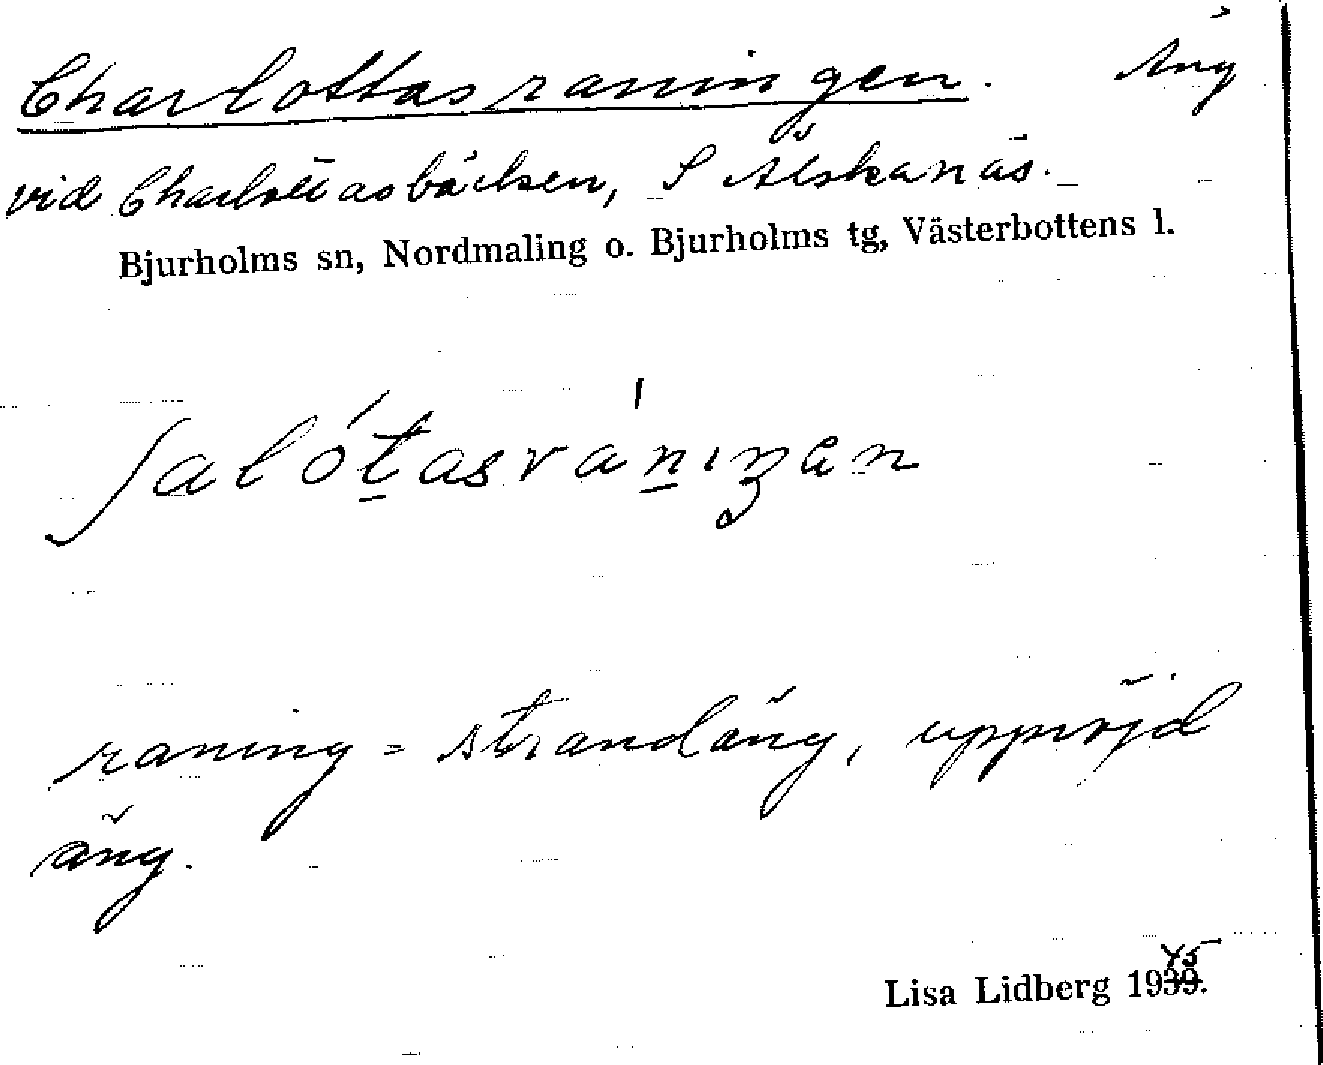 Charlottasraningen. Äng
vid Charlottasbäcken, S Älskanäs.
Bjurholms sn, Nordmaling o. Bjurholms tg, Västerbottens l.
ʃalótasránıŋen
raning = strandäng, uppröjd
äng.
Lisa Lidberg 1939. 45